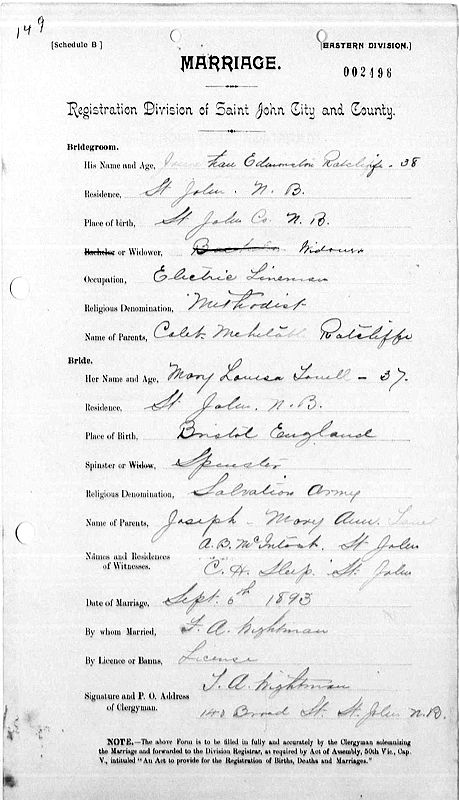 149
[Schedule B] [EASTERN DIVISION.]
MARRIAGE. 002496
Registration Division of Saint John City and County.
Bridegroom.
His Name and Age, Edmonston Ratcliffe - 38
Residence, St John. N. B.
Place of birth, St John Co. N. B.
Bachelor or Widower, Widower
Occupation, Electric Lineman
Religious Denomination, Methodist
Name of Parents, Caleb - Mehitabl Ratcliffe
Bride.
Her Name and Age, Mary Louisa - 37.
Residence, St John. N. B.
Place of Birth, Bristol England
Spinster or Widow, Spinster
Religious Denomination, Salvation Army
Name of Parents, Joseph - Mary Ann.
Names and Residences A. B. McIntosh. St John
of Witnesses. C. H. Sleep. St John
Date of Marriage, Sept. 6th 1893
By whom Married, F. A. Wightman
By Licence or Banns, License
Signature and P. O. Address F. A. Wightman
of Clergyman. 140 Broad St. St. John N. B.
NOTE.—The above Form is to be filled in fully and accurately by the Clergyman solemnizing
the Marriage and forwarded to the Division Registrar, as required by Act of Assembly, 50th Vic., Cap.
V., intituled "An Act to provide for the Registration of Births, Deaths and Marriages."